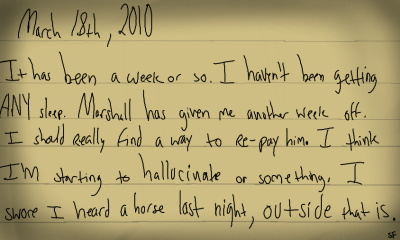 March 18th, 2010
It has been a week or so. I haven't been getting
ANY sleep. Marshall has given me another week off.
I should really find a way to re-pay him. I think
I'm starting to hallucinate or something. I
swore I heard a horse last night, outside that is.
SF